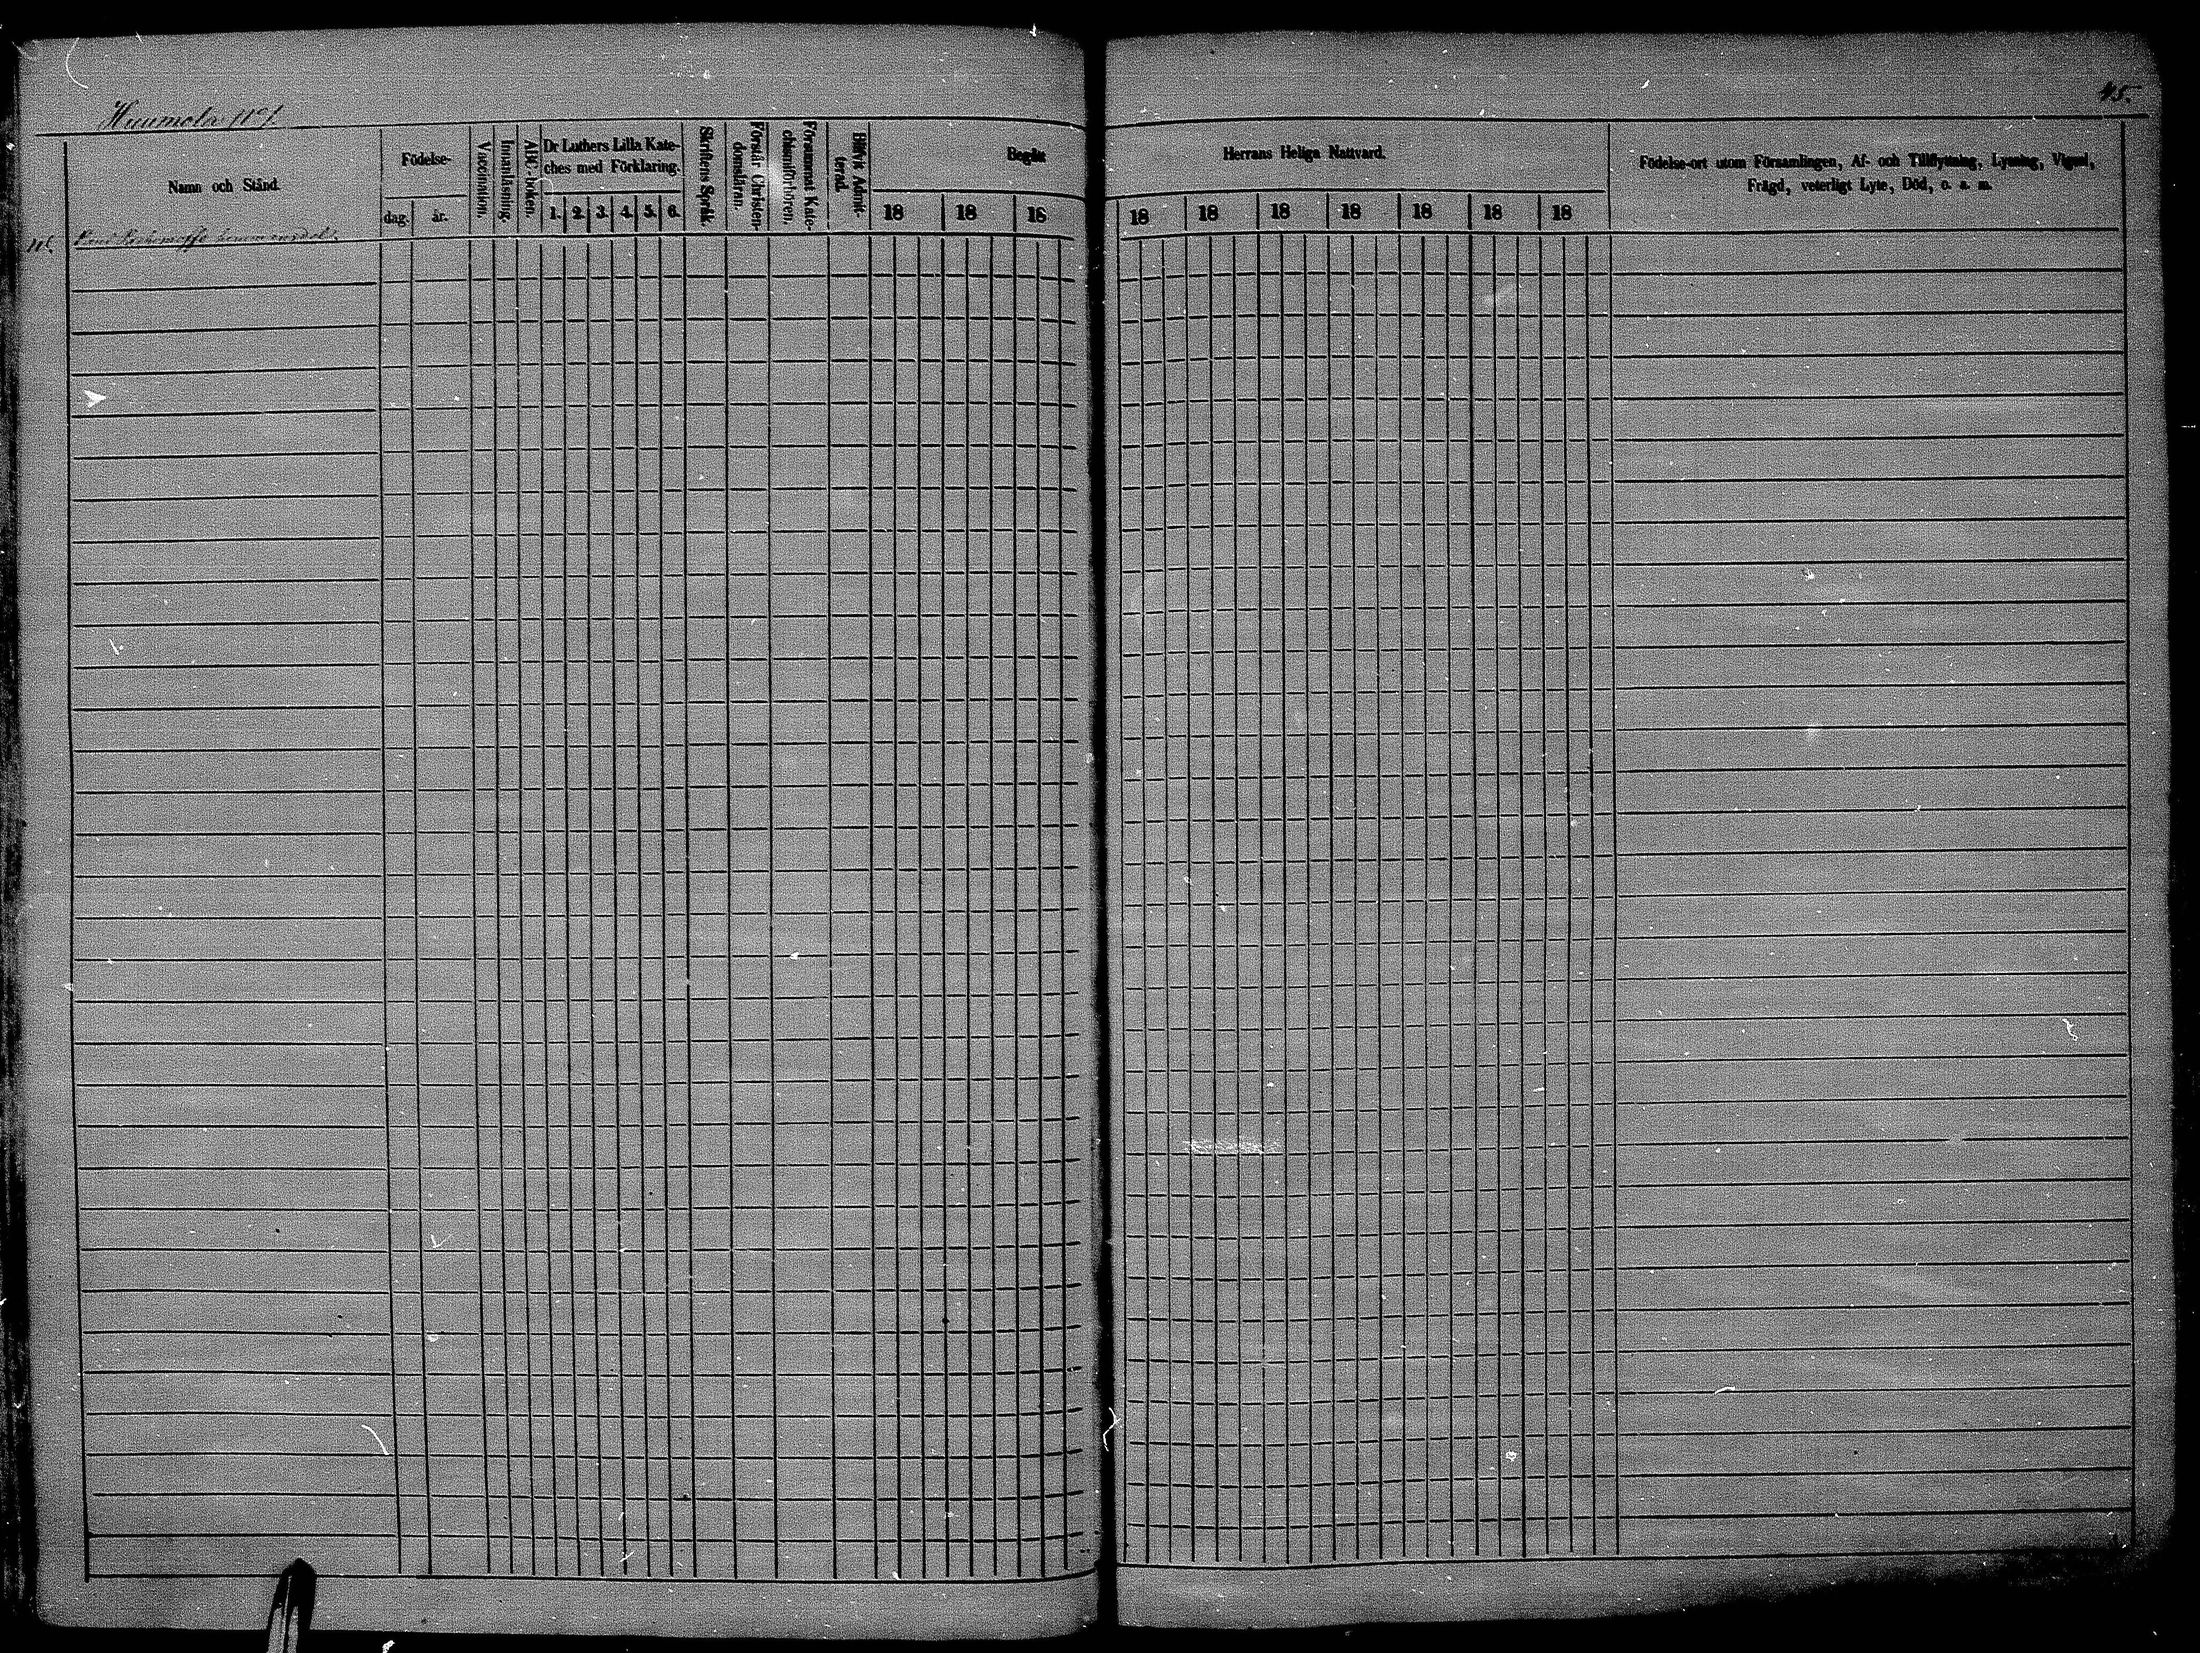 45.
Namn och Stånd.
Födelse-
dag. år.
Vaccination.
Innanläsning.
ABC-boken.
Dr Luthers Lilla Kate-
ches med Förklaring.
1. 2. 3. 4. 5. 6.
Skriftens Språk.
Förstår Christen-
domsläran.
Försummat Kate-
chismiförhören.
Blifvit Admit-
terad.
Begått
18 18 18
Herrans Heliga Nattvard.
18 18 18 18 18 18 18
Födelse-ort utom Församlingen, Af- och Tillflyttning, Lysning, Vigsel,
Frägd, veterligt Lyte, Död, o. s. m.